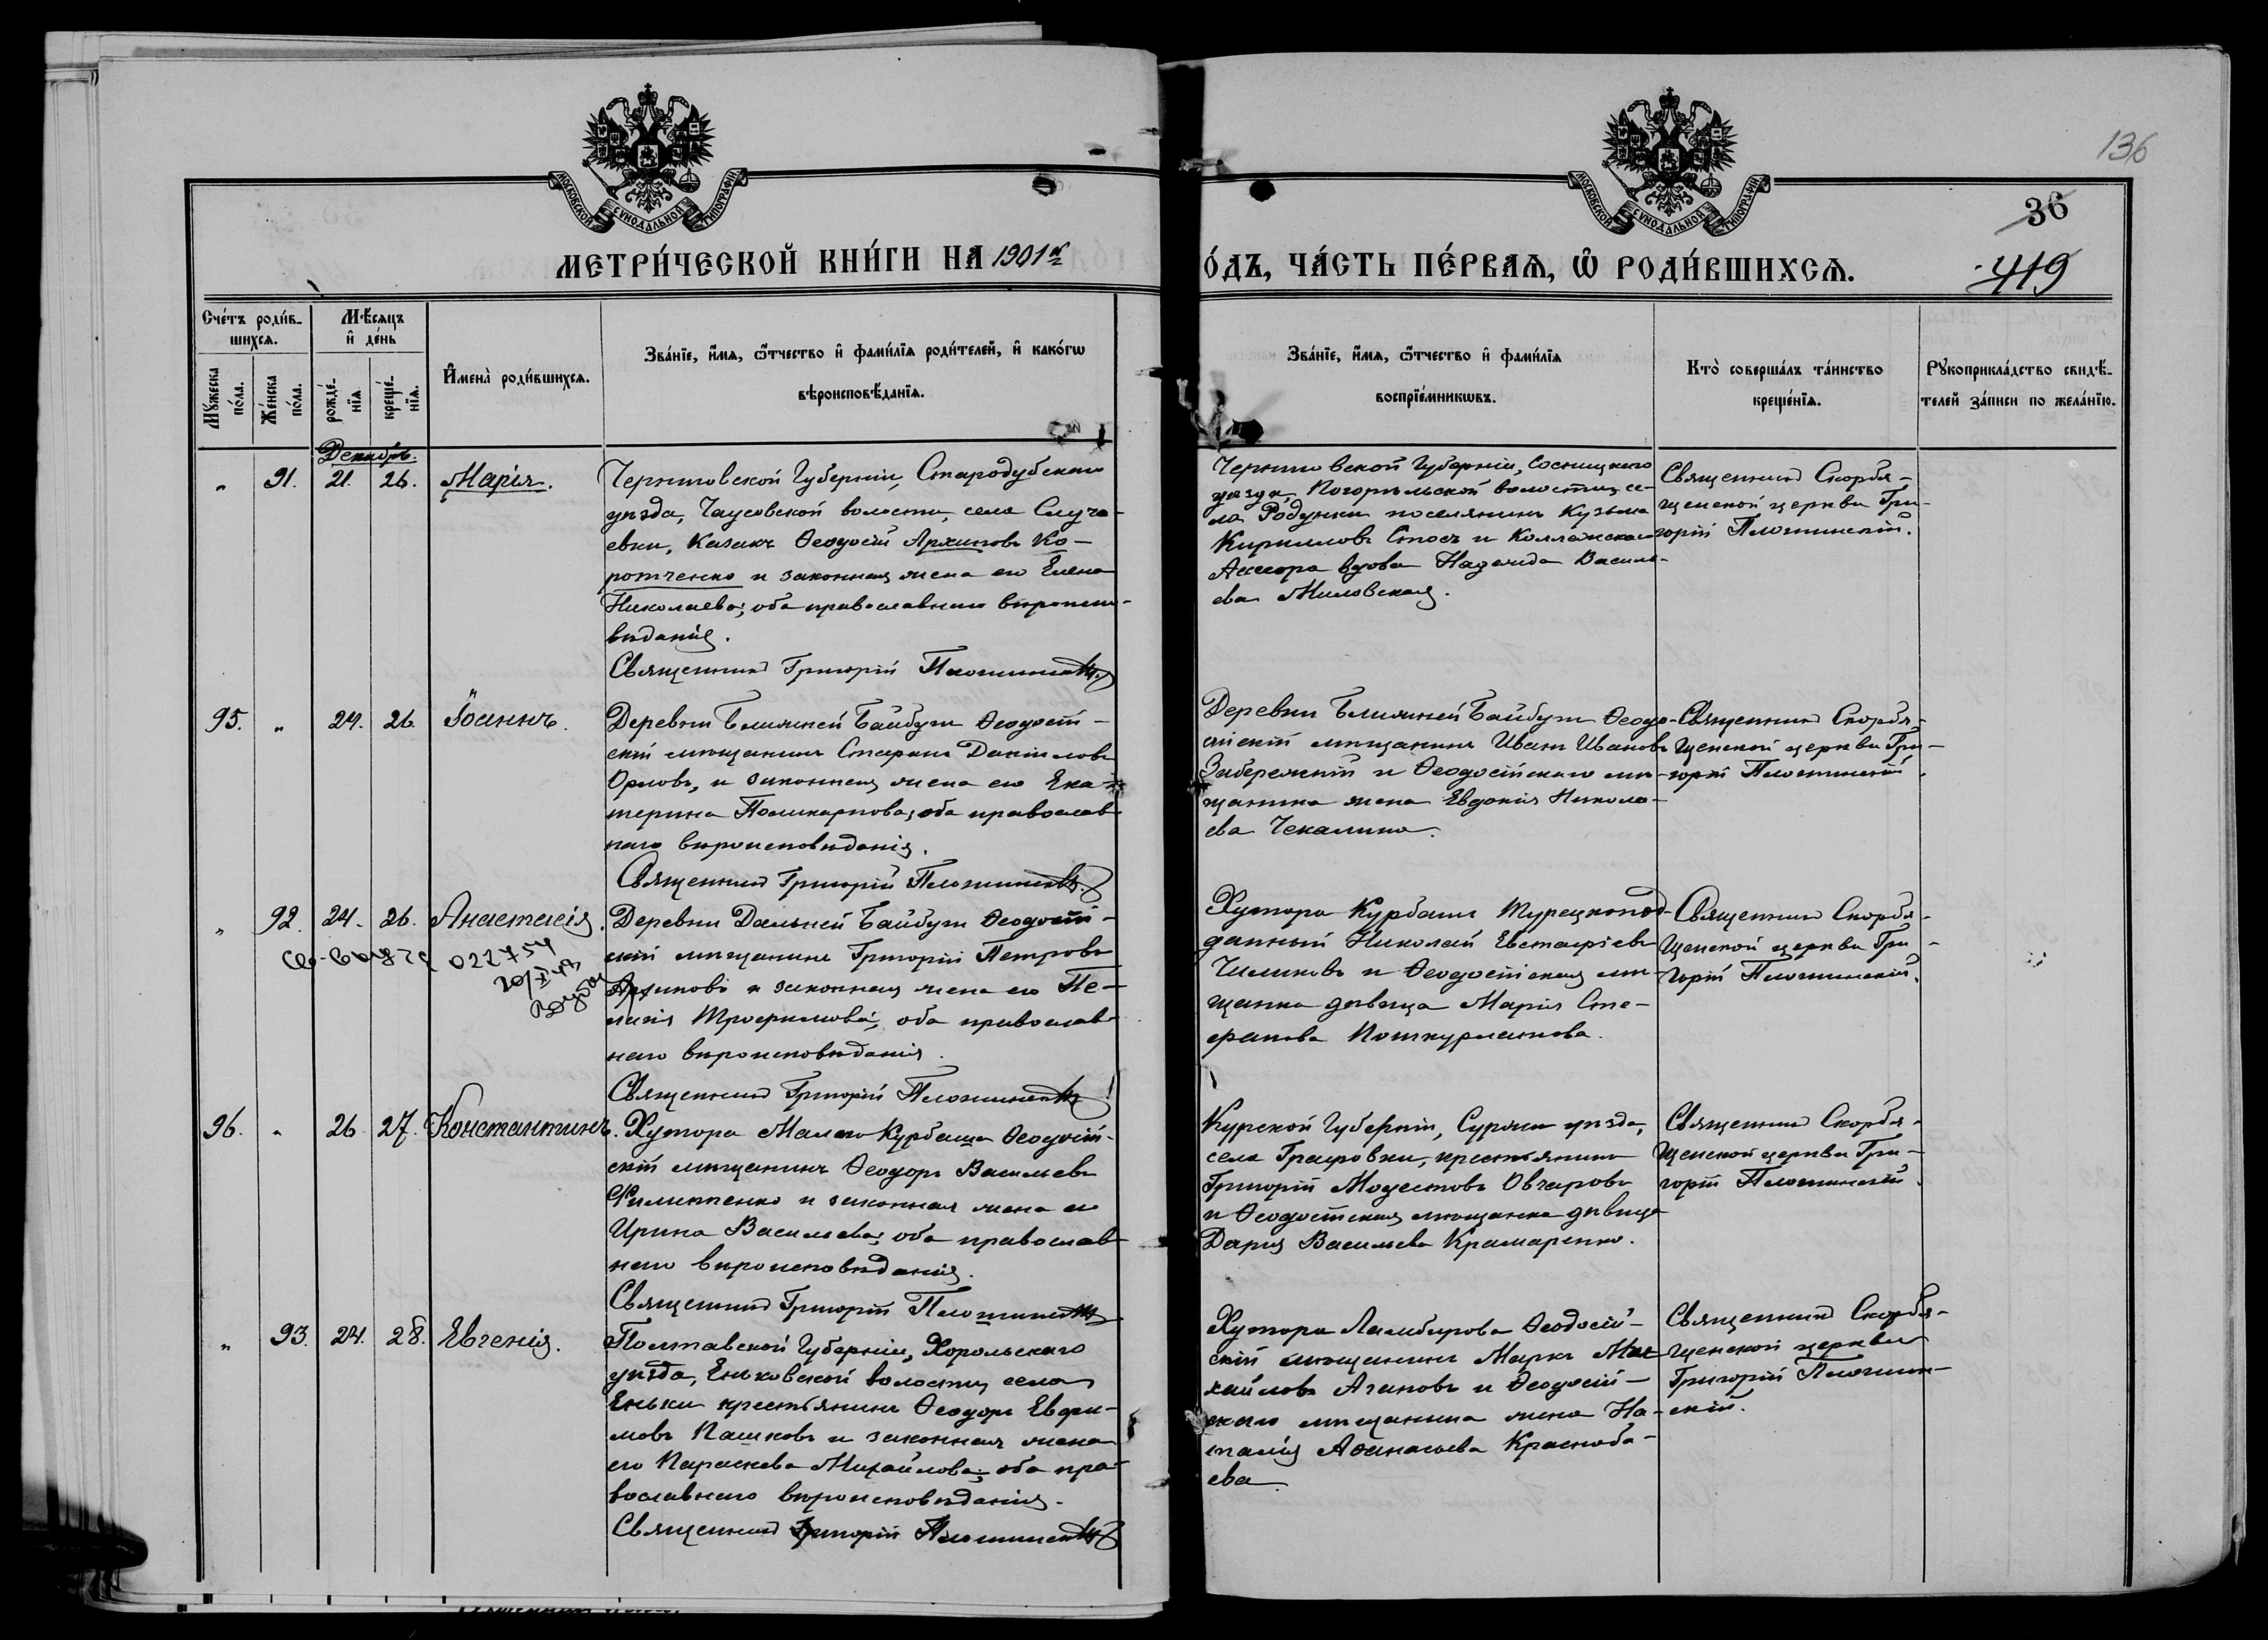 136
36
419
МОСКОВСКОЙ СУНОДАЛЬНОЙ ТИПОГРАФІИ
МОСКОВСКОЙ СУНОДАЛЬНОЙ ТИПОГРАФІИ
МЕТРИ́ЧЕСКОЙ КНИ́ГИ НА 1901 й
О́ДЪ, ЧА́СТЬ ПЕ́РВАѦ, Ѡ҆ РОДИ́ВШИХСѦ.
Сче́тъ роди́в-
шихсѧ.
Мѣ́сѧцъ
и҆ де́нь
Мꙋ́жеска по́ла.
Же́нска по́ла.
рожде́-
нїѧ
креще́-
нїѧ.
И҆мена̀ роди́вшихсѧ.
Зва́нїе, и҆́мѧ, ѻ҆́тчество и҆ фами́лїѧ роди́телей, и҆ како́гѡ
вѣроисповѣ́данїѧ.
Зва́нїе, и҆́мѧ, ѻ҆́тчество и҆ фами́лїѧ
воспрїе́мникѡвъ.
Кто̀ соверша́лъ та́инство
креще́нїѧ.
Рꙋкоприкла́дство свидѣ́-
телей за́писи по жела́нїю.
Декабрь.
„ 91. 21. 26. Марія.
Черниговской Губерніи, Стародубскаго
уѣзда, Чаусовской волости, села Случо-
евки, казакъ Ѳеодосій Архиповъ Ко-
ротченко и законная жена его Елена
Николаева; оба православнаго вѣроиспо-
вѣданія.
Священникъ Григорій Плотинскій
Черниговской Губерніи, Сосницкаго
уѣзда, Погорѣльской волости, се-
ла Радунки поселянинъ Кузьма
Кирилловъ Стось и Коллежскаго
Ассесора вдова Надежда Василь-
ева Миловская.
Священникъ Скорбя-
щенской церкви Гри-
горій Плотинскій.
95. „ 24. 26. Іоаннъ.
Деревни Ближней Байбуги Ѳеодосій-
скій мѣщанинъ Стефанъ Даниловъ
Орловъ, и законная жена его Ека-
терина Поликарпова; оба православ-
наго вѣроисповѣданія.
Священникъ Григорій Плотинскій
Деревни Ближней Байбуги Ѳеодо-
сійскій мѣщанинъ Иванъ Ивановъ
Забережній и Ѳеодосійскаго мѣ-
щанина жена Евдокія Никола-
ева Чекалина.
Священникъ Скорбя-
щенской церкви Гри-
горій Плотинскій.
„ 92. 24. 26. Анастасія.
022754
Деревни Дальней Байбуги Ѳеодосій-
скій мѣщанинъ Григорій Петровъ
Архиповъ и законная жена его Пе-
лагія Трофимова; оба православ-
наго вѣроисповѣданія.
Священникъ Григорій Плотинскій
Хутора Курбаша Турецкопод-
данный Николай Евстафіевъ
Чиликовъ и Ѳеодосійская мѣ-
щанка дѣвица Марія Сте-
фанова Поткурланова.
Священникъ Скорбя-
щенской церкви Гри-
горій Плотинскій.
96. „ 26. 27. Константинъ.
Хутора Малаго Курбаша Ѳеодосій-
скій мѣщанинъ Ѳеодоръ Васильевъ
Филипенко и законная жена его
Ирина Васильева; оба православ-
наго вѣроисповѣданія.
Священникъ Григорій Плотинскій
Курской Губерніи, Суджан уѣзда,
села Графовки, крестьянинъ
Григорій Модестовъ Овчаровъ
и Ѳеодосійская мѣщанка дѣвица
Дарія Васильева Крамаренко.
Священникъ Скорбя-
щенской церкви Гри-
горій Плотинскій.
„ 93. 24. 28. Евгенія.
Полтавской Губерніи, Хорольскаго
уѣзда, Еньковской волости, села
Еньки крестьянинъ Ѳеодоръ Евфи-
мовъ Пашковъ и законная жена
его Параскева Михайлова; оба пра-
вославнаго вѣроисповѣданія.
Священникъ Григорій Плотинскій
Хутора Ламбирова Ѳеодосій-
скій мѣщанинъ Маркъ Ми-
хайловъ Агановъ и Ѳеодосій-
скаго мѣщанина жена На-
талія Аѳанасьева Краснoба-
ева.
Священникъ Скорбя-
щенской церкви
Григорій Плотин-
скій.